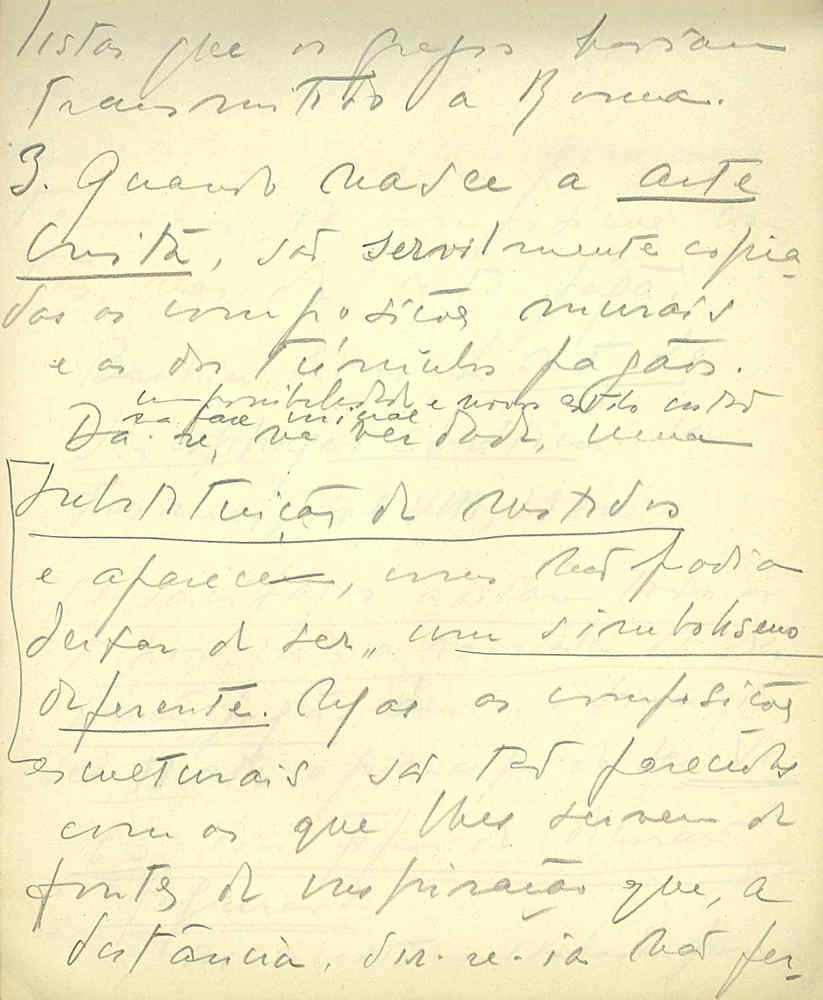 listas que os gregos haviam
transmitido a Roma.
3. Quando nasce a arte
Cristã, são servilmente copia-
das as composições murais
e as dos túmulos pagãos.
impossibilidade e novo estilo cristão
na fase inicial
Dá-se, na verdade, uma
substituição de vestidos
e aparece, como não podia
deixar de ser, um simbolismo
diferente. Mas as composições
esculturais são tão parecidas
com as que lhes servem de
fontes de inspiração que, a
distância, dir-se-ia não per-